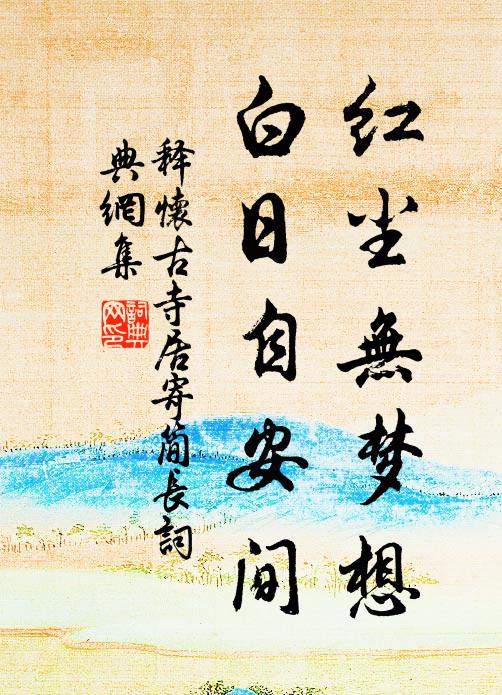 红尘無梦想
白日自安间
释懷古寺居寄简長詞
典網集
詞典网印